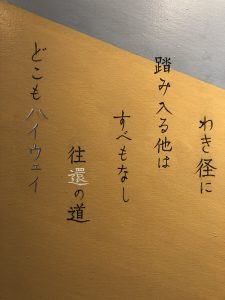 わき径に
踏み入る他は
すべもなし
往還の道
どこもハイウェイ